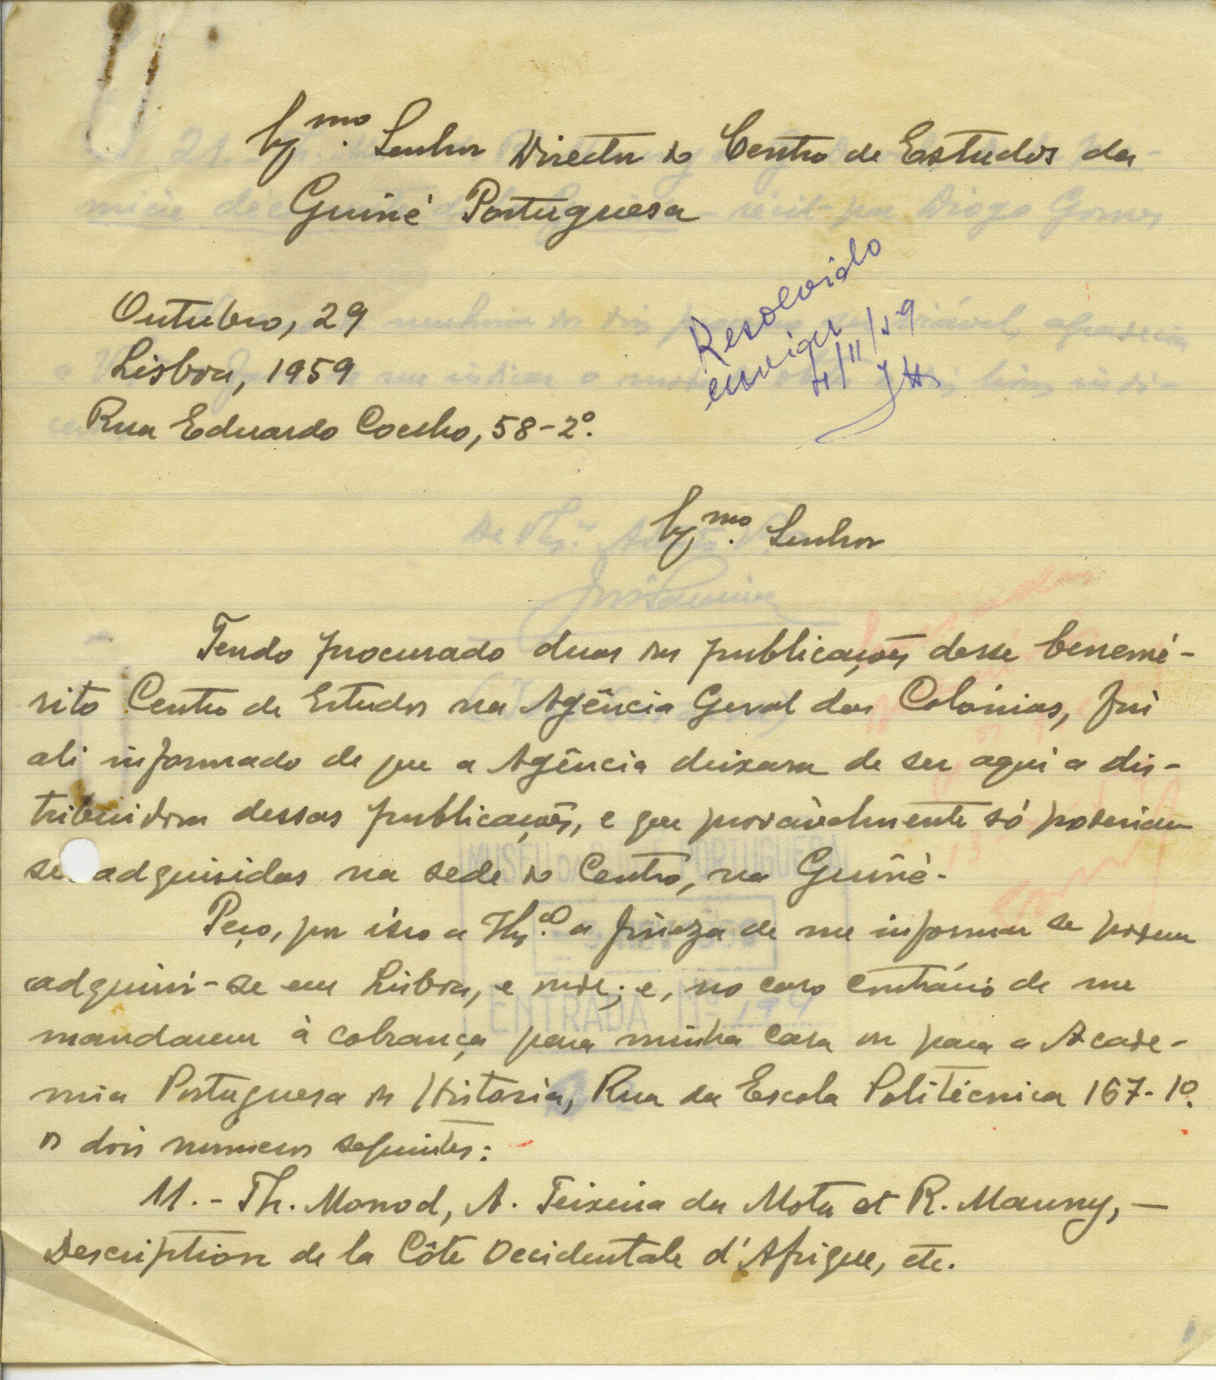 Exmo. Senhor Director do Centro de Estudos da
Guiné Portuguesa
Outubro, 29
Lisboa, 1959
Rua Eduardo Coelho, 58-2º.
Resolvido
enviar
4/11/59
Exmo. Senhor
Tendo procurado duas das publicações desse benemé-
rito Centro de Estudos na Agência Geral das Colónias, fui
ali informado de que a Agência deixara de ser aqui a dis-
tribuidora dessas publicações, e que provàvelmente só poderiam
ser adquiridas na sede do Centro, na Guiné.
Peço, por isso a V. Exª. a fineza de me informar se podem
adquirir-se em Lisboa, e onde; e, no caso contrário de me
mandarem à cobrança para minha casa ou para a Acade-
mia Portuguesa da História, Rua da Escola Politécnica 167-1º.
os dois numeros seguintes:
11.- Th. Monod, A. Teixeira da Mota et R. Mauny, —
Description de la Côte Occidentale d'Afrique, etc.
MUSEU DA GUINÉ PORTUGUESA
ENTRADA Nº 199